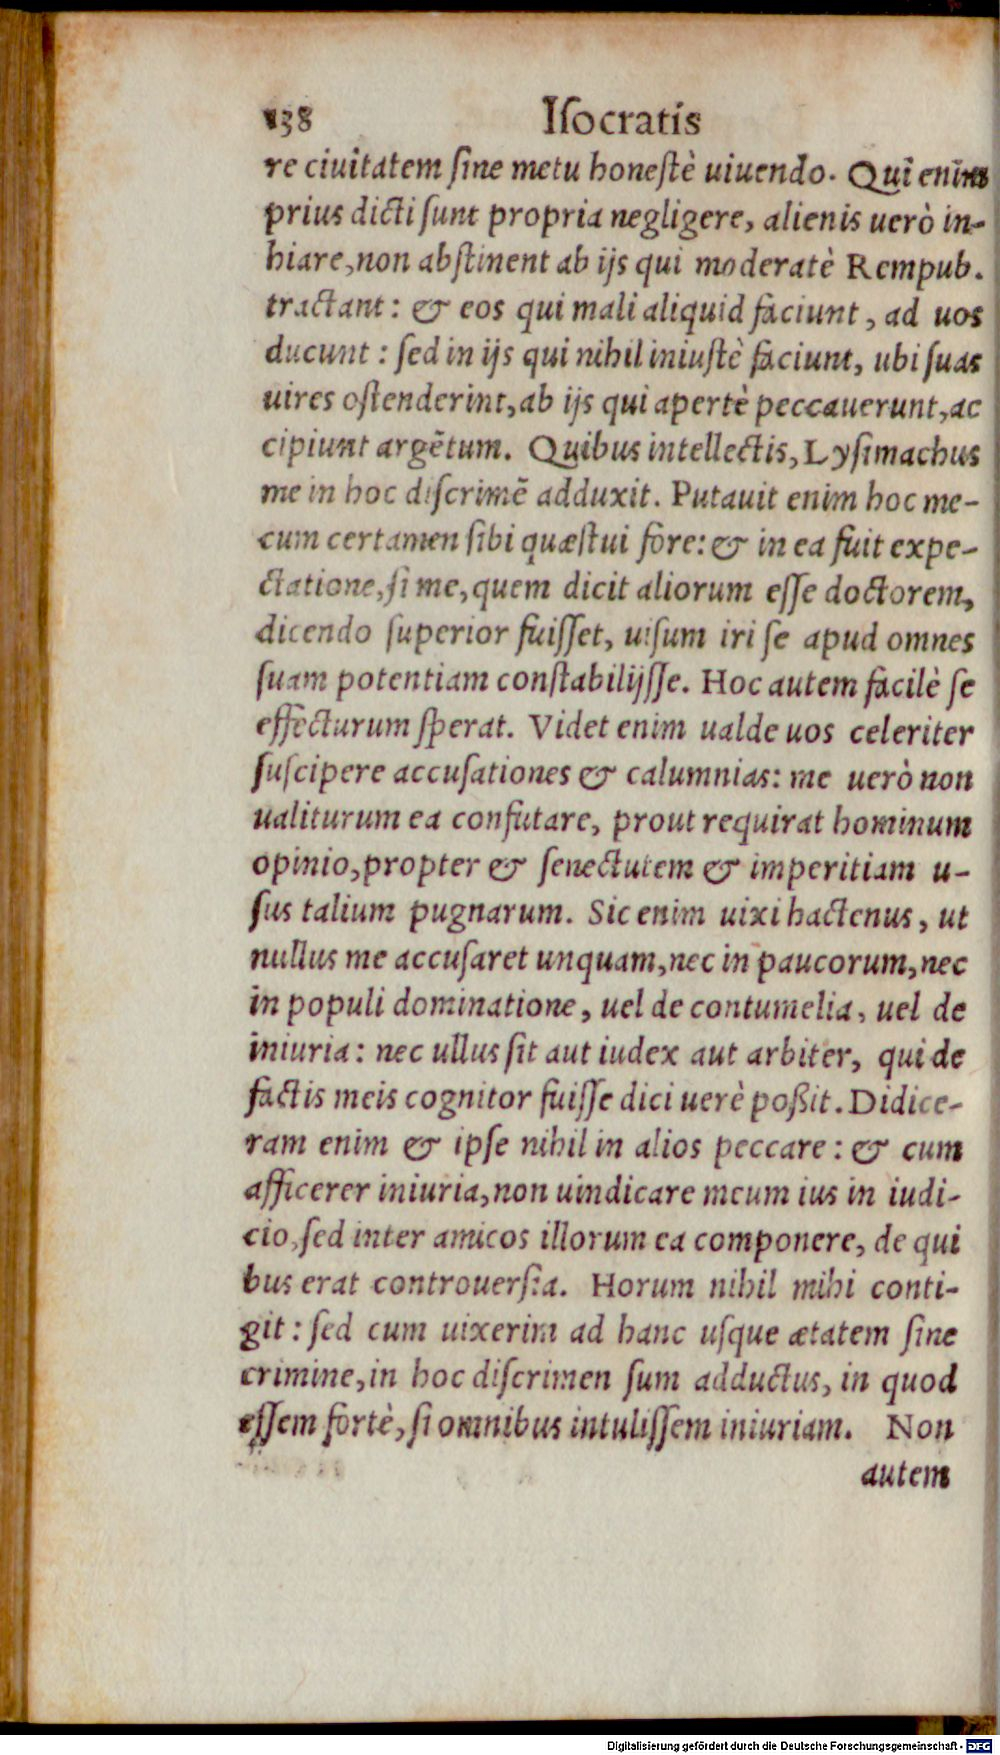 138 Iſocratis
re ciuitatem ſine metu honeſtè uiuendo. Qui enim
prius dicti ſunt propria negligere, alienis uerò in-
hiare, non abſtinent ab ijs qui moderatè Rempub.
tractant: & eos qui mali aliquid faciunt, ad uos
ducunt: ſed in ijs qui nihil iniuſtè faciunt, ubi ſuas
uires oſtenderint, ab ijs qui apertè peccauerunt, ac
cipiunt argẽtum. Quibus intellectis, Lyſimachus
me in hoc diſcrimẽ adduxit. Putauit enim hoc me-
cum certamen ſibi quæſtui fore: & in ea fuit expe-
ctatione, ſi me, quem dicit aliorum eſſe doctorem,
dicendo ſuperior fuiſſet, uiſum iri ſe apud omnes
ſuam potentiam conſtabilijſſe. Hoc autem facilè ſe
effecturum ſperat. Videt enim ualde uos celeriter
ſuſcipere accuſationes & calumnias: me uerò non
ualiturum ea confutare, prout requirat hominum
opinio, propter & ſenectutem & imperitiam u-
ſus talium pugnarum. Sic enim uixi hactenus, ut
nullus me accuſaret unquam, nec in paucorum, nec
in populi dominatione, uel de contumelia, uel de
iniuria: nec ullus ſit aut iudex aut arbiter, qui de
factis meis cognitor fuiſſe dici uerè poßit. Didice-
ram enim & ipſe nihil in alios peccare: & cum
afficerer iniuria, non uindicare meum ius in iudi-
cio, ſed inter amicos illorum ea componere, de qui
bus erat controuerſia. Horum nihil mihi conti-
git: ſed cum uixerim ad hanc uſque ætatem ſine
crimine, in hoc diſcrimen ſum adductus, in quod
eſſem fortè, ſi omnibus intuliſſem iniuriam. Non
autem
Digitalisierung gefördert durch die Deutsche Forschungsgemeinschaft - DFG